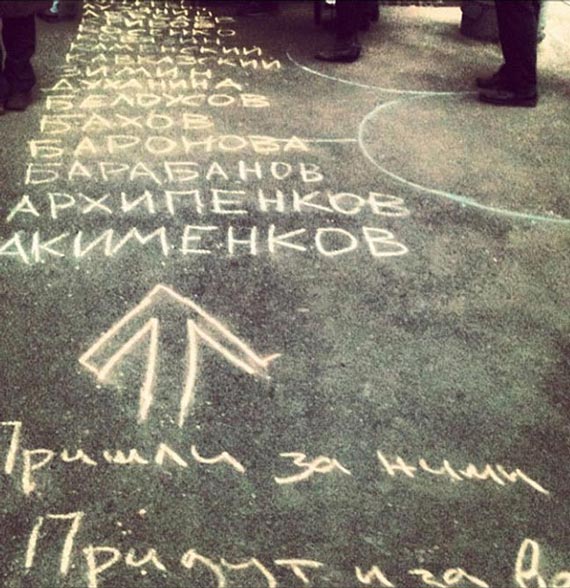 КАМЕНСКИЙ
КАВКАЗСКИЙ
ЗИМИН
ДУХАНИНА
БЕЛОУСОВ
БАХОВ
БАРОНОВА
БАРАБАНОВ
АРХИПЕНКОВ
АКИМЕНКОВ
Пришли за ними
Придут и за